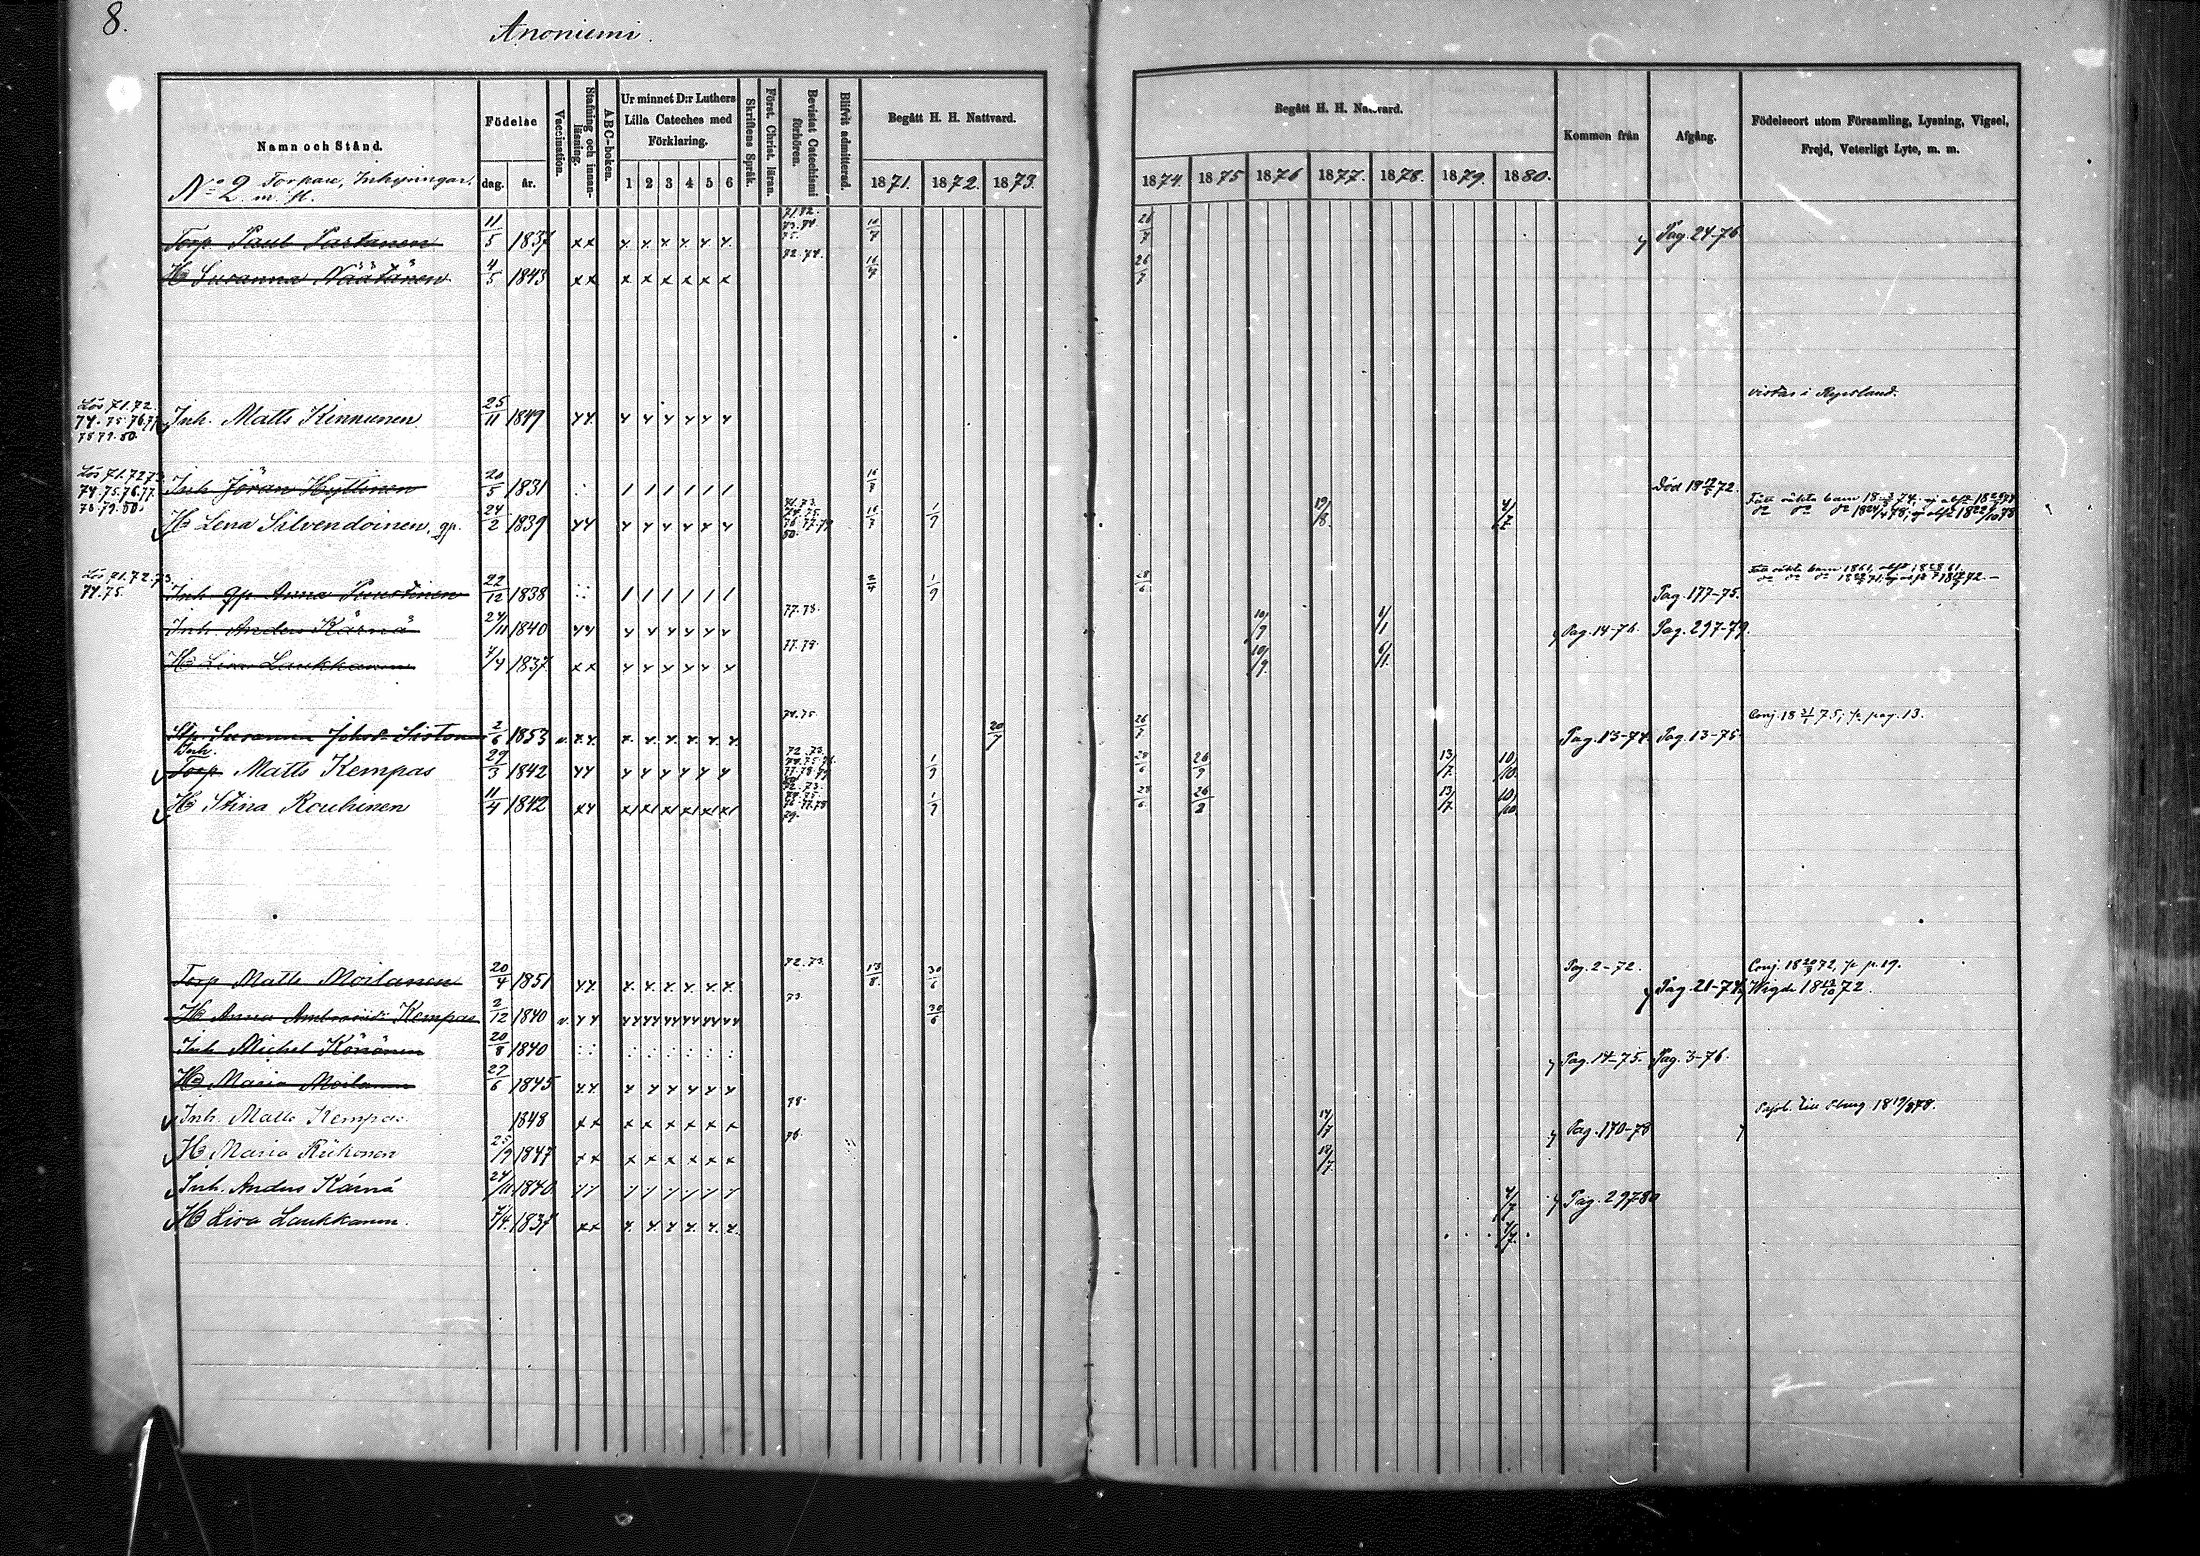 8.
Anoniemi.
Namn och Stånd.
Födelse
dag. år.
Vaccination.
Stafning och innanläsning.
A B C-boken.
Ur minnet D:r Luthers Lilla Cateches med Förklaring.
1 2 3 4 5 6
Skriftens Språk.
Först. Christ. läran.
Bevistat Catechismi förhören.
Blifvit admitterad.
Begått H. H. Nattvard.
1871. 1872. 1873.
Begått H. H. Nattvard.
1874. 1875 1876 1877. 1878. 1879. 1880.
Kommen från
Afgång.
Födelseort utom Församling, Lysning, Vigsel, Frejd, Veterligt Lyte, m. m.
No 2. Torpare, Inhysingar m. fl.
Torp. Paul Partanen 11/5 1837 71.72. 73.74 75. 16/7 26/7 Pag. 24-76
H Susanna Näätänen 4/5 1843 72.74. 16/7 26/7
Lös 71.72. 74.75.76.77 78 79.80. Inh. Matts Kinnunen 25/11 1849 vistas i Ryssland.
Lös 71.72 73. 74.75.76.77. 78.79.80. Inh. Jöran Hyttinen 20/5 1831 16/7 Död 18 72.
H Lena Silvendoinen, gp. 24/2 1839 16/7 1/9 19/8 4/7
Lös 71.72.73. 74.75. Inh. gp. Anna Puustinen 22/12 1838 1/9 28/6 Pag. 177-75.
Inh. Anders Kärnä 24/11 1840 77.78. 10/9 6/1 Pag. 14-76. Pag. 297-79.
H Lisa Laukkanen 7/4 1837 77.78. 10/9 6/1
Susanna Johsdr Sistonen 2/6 1853 v. 74.75 20/7 26/7 Pag. 13-74. Pag. 13-75. Conj. 18 75; pag. 13.
Inh. Torp. Matts Kempas 29/3 1842 1/9 28/6 26/9 13/7. 10/10.
H Stina Rouhinen 11/4 1842 1/9 28/6 26/2 13/7 10/10.
Torp Matts Moilanen 20/4 1851 72.73. 13/8. 30/6 Pag. 2-72. Conj. 18 72, p. 19.
Pag. 21-74. Vigde 18 13/10 72.
H Anna Kempas 2/12 1840 v. 73. 30/6
Inh. Michel Könönen 20/8 1840 Pag. 14-75. Pag. 3-76.
H Maria Moilanen 27/6 1845
Inh. Matts Kempas 1848 78. 14/7 Pag. 170-78 till Pburg 18 19/8 78.
H Maria Riikonen 25/9 1847 76. 14/7
Inh. Anders Kärnä 24/11 1840. 4/7 Pag. 297 80
H Lisa Laukkanen. 7/4. 1837 4/7.